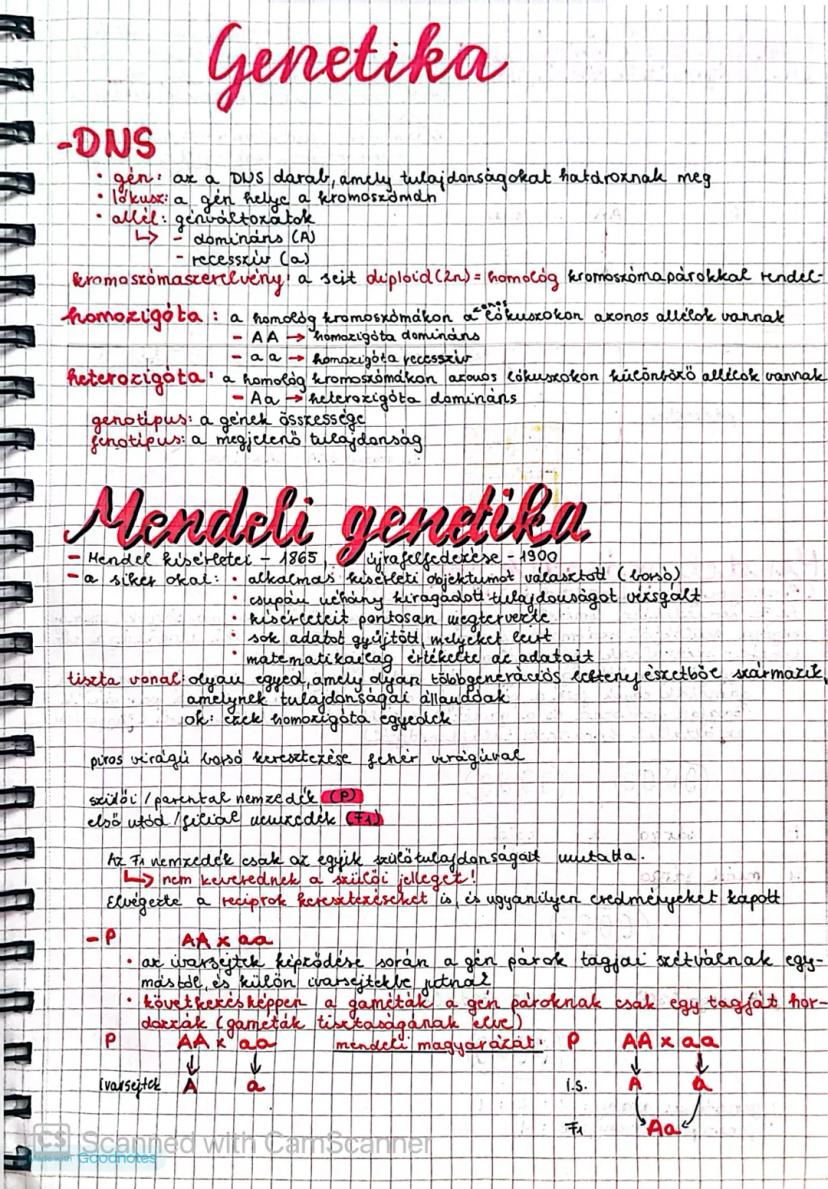 Genetika
-DNS
• gén: az a DNS darab, amely tulajdonságokat határoznak meg
• lókusz: a gén helye a kromoszómán
• allél: génváltozatok
↳ - domináns (A)
- recesszív (a)
kromoszómaszerelvény: a sejt diploid (2n) = homológ kromoszómapárokkal rendel-
homozigóta: a homológ kromoszómákon azonos lókuszokon azonos allélok vannak
- AA → homozigóta domináns
- aa → homozigóta recesszív
heterozigóta: a homológ kromoszómákon azonos lókuszokon különböző allélok vannak
- Aa → heterozigóta domináns
genotípus: a gének összessége
fenotípus: a megjelenő tulajdonság
Mendeli genetika
- Mendel kísérletei - 1865, újrafelfedezése - 1900
- a siker okai: • alkalmas kísérleti objektumot választott (borsó)
• csupán néhány kiragadott tulajdonságot vizsgált
• kísérleteit pontosan megtervezte
• sok adatot gyűjtött, melyeket leírt
• matematikailag értékelte az adatait
tiszta vonal: olyan egyed, amely olyan többgenerációs beltenyészetből származik,
amelynek tulajdonságai állandóak
ok: ezek homozigóta egyedek
piros virágú borsó keresztezése fehér virágúval
szülői/parentál nemzedék (P)
első utód/filiál nemzedék (F1)
Az F1 nemzedék csak az egyik szülő tulajdonságait mutatta.
↳ nem keverednek a szülői jelleget!
Elvégezte a reciprok kereszteződéseket is, és ugyanilyen eredményeket kapott
- P AA x aa
• az ivarsejtek képződése során a gén párok tagjai szétválnak egy-
mástól, és külön ivarsejtekbe jutnak
• következésképpen a gaméták a gén pároknak csak egy tagját hor-
dozzák (gaméták tisztaságának elve)
P AA x aa mendeli magyarázat: P AA x aa
Ivarsejtek A a i.s. A a
F1 Aa
CS Scanned with CamScanner
Made with Goodnotes